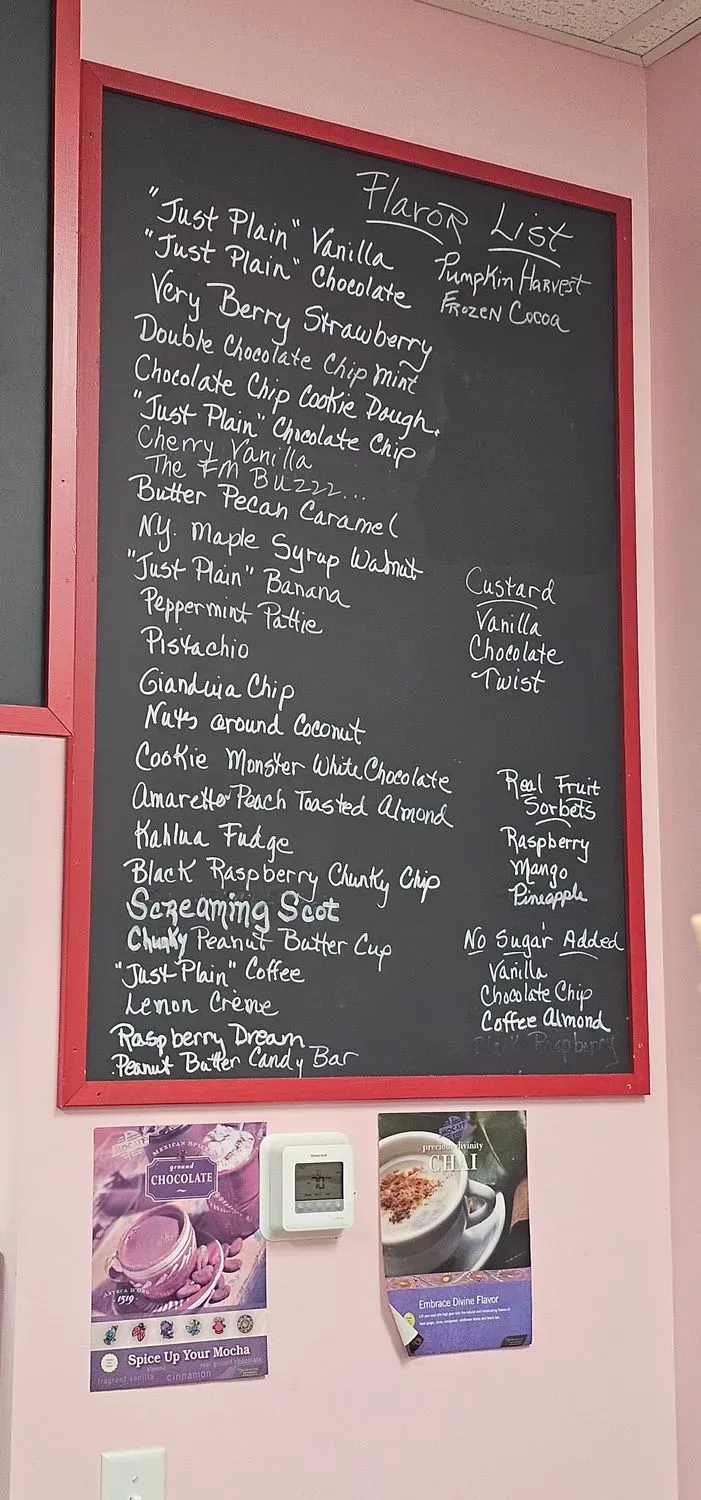 Flavor List
"Just Plain" Vanilla
"Just Plain" Chocolate
Very Berry Strawberry
Double Chocolate Chip Mint
Chocolate Chip Cookie Dough.
"Just Plain" Chocolate Chip
Cherry Vanilla
The FM Buzzz...
Butter Pecan Caramel
NY. Maple Syrup Walnut
"Just Plain" Banana
Peppermint Pattie
Pistachio
Gianduia Chip
Nuts around Coconut
Cookie Monster White Chocolate
Amaretto Peach Toasted Almond
Kahlua Fudge
Black Raspberry Chunky Chip
Screaming Scot
Chunky Peanut Butter Cup
"Just Plain" Coffee
Lemon Crème
Raspberry Dream
Peanut Butter Candy Bar
Pumpkin Harvest
Frozen Cocoa
Custard
Vanilla
Chocolate
Twist
Real Fruit
Sorbets
Raspberry
Mango
Pineapple
No Sugar Added
Vanilla
Chocolate Chip
Coffee Almond
Black Raspberry
MOCAFE
MEXICAN SPICE
ground
CHOCOLATE
AZTECA D'ORO
1519
Spice Up Your Mocha
almond
real ground chocolate
fragrant vanilla
cinnamon
Honeywell
70
MOCAFE
precious divinity
CHAI
Embrace Divine Flavor